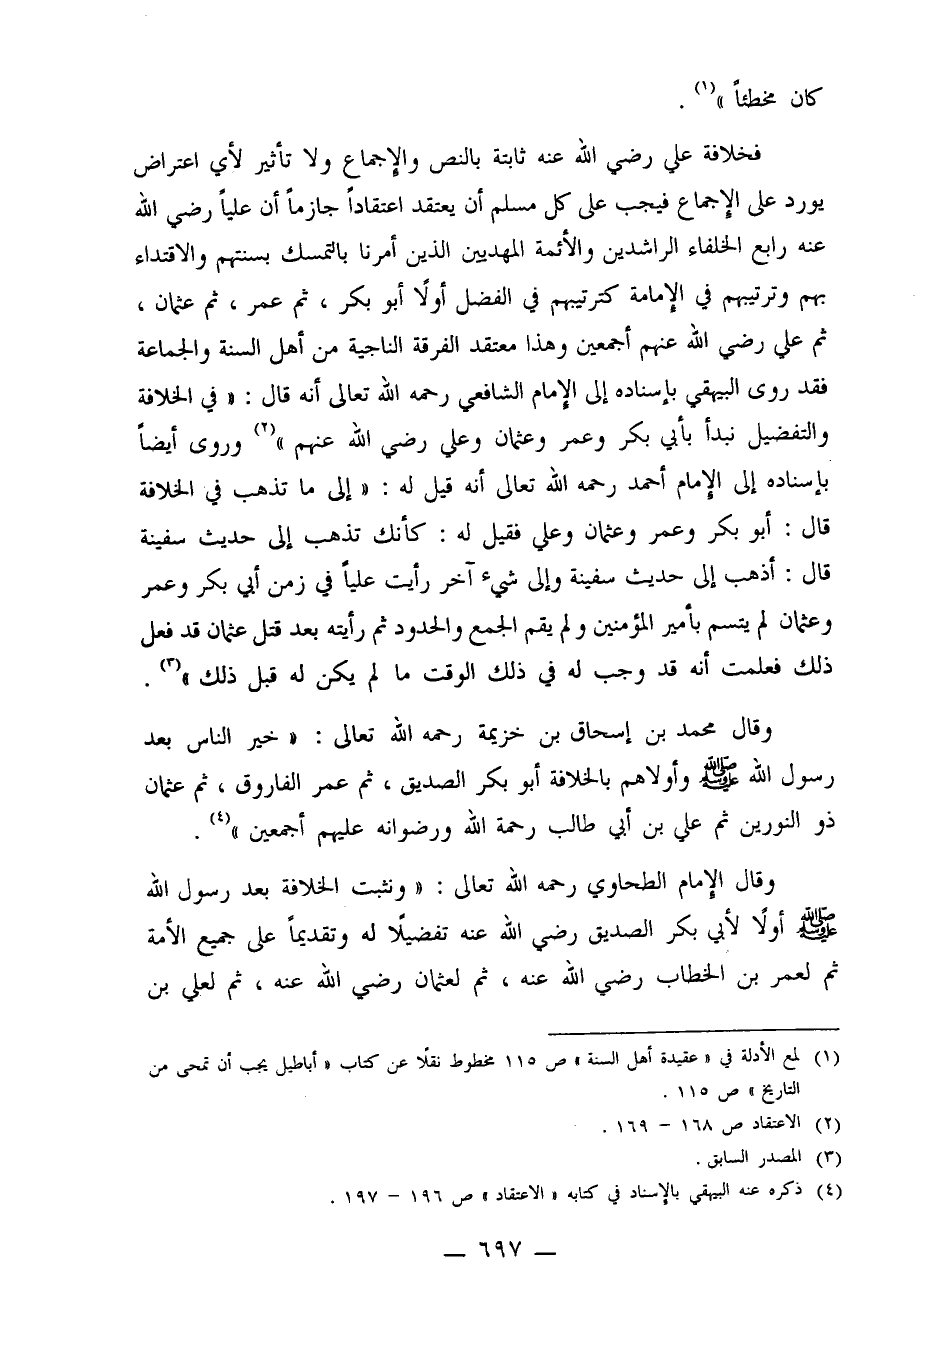 كان مخطئاً »(١) .
فخلافة علي رضي الله عنه ثابتة بالنص والإجماع ولا تأثير لأي اعتراض
يورد على الإجماع فيجب على كل مسلم أن يعتقد اعتقاداً جازماً أن علياً رضي الله
عنه رابع الخلفاء الراشدين والأئمة المهديين الذين أمرنا بالتمسك بسنتهم والاقتداء
بهم وترتيبهم في الإمامة كترتيبهم في الفضل أولًا أبو بكر ، ثم عمر ، ثم عثمان ،
ثم علي رضي الله عنهم أجمعين وهذا معتقد الفرقة الناجية من أهل السنة والجماعة
فقد روى البيهقي بإسناده إلى الإمام الشافعي رحمه الله تعالى أنه قال : « في الخلافة
والتفضيل نبدأ بأبي بكر وعمر وعثمان وعلي رضي الله عنهم »(٢) وروى أيضاً
بإسناده إلى الإمام أحمد رحمه الله تعالى أنه قيل له : « إلى ما تذهب في الخلافة
قال : أبو بكر وعمر وعثمان وعلي فقيل له : كأنك تذهب إلى حديث سفينة
قال : أذهب إلى حديث سفينة وإلى شيء آخر رأيت علياً في زمن أبي بكر وعمر
وعثمان لم يتسم بأمير المؤمنين ولم يقم الجمع والحدود ثم رأيته بعد قتل عثمان قد فعل
ذلك فعلمت أنه قد وجب له في ذلك الوقت ما لم يكن له قبل ذلك »(٣) .
وقال محمد بن إسحاق بن خزيمة رحمه الله تعالى : « خير الناس بعد
رسول الله ﷺ وأولاهم بالخلافة أبو بكر الصديق ، ثم عمر الفاروق ، ثم عثمان
ذو النورين ثم علي بن أبي طالب رحمة الله ورضوانه عليهم أجمعين »(٤) .
وقال الإمام الطحاوي رحمه الله تعالى : « ونثبت الخلافة بعد رسول الله
ﷺ أولًا لأبي بكر الصديق رضي الله عنه تفضيلًا له وتقديماً على جميع الأمة
ثم لعمر بن الخطاب رضي الله عنه ، ثم لعثمان رضي الله عنه ، ثم لعلي بن
(١) لمع الأدلة في « عقيدة أهل السنة » ص ١١٥ مخطوط نقلًا عن كتاب « أباطيل يجب أن تمحى من
التاريخ » ص ١١٥ .
(٢) الاعتقاد ص ١٦٨ – ١٦٩ .
(٣) المصدر السابق .
(٤) ذكره عنه البيهقي بالإسناد في كتابه « الاعتقاد » ص ١٩٦ – ١٩٧ .
— ٦٩٧ —